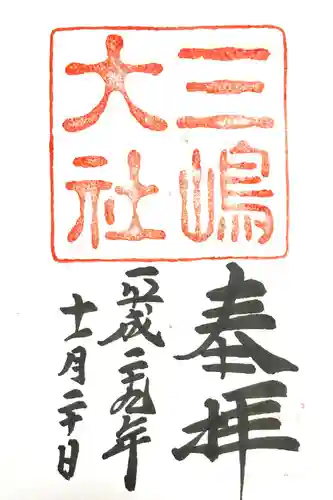 三嶋
大社
奉拝
平成二十九年
十一月二十日